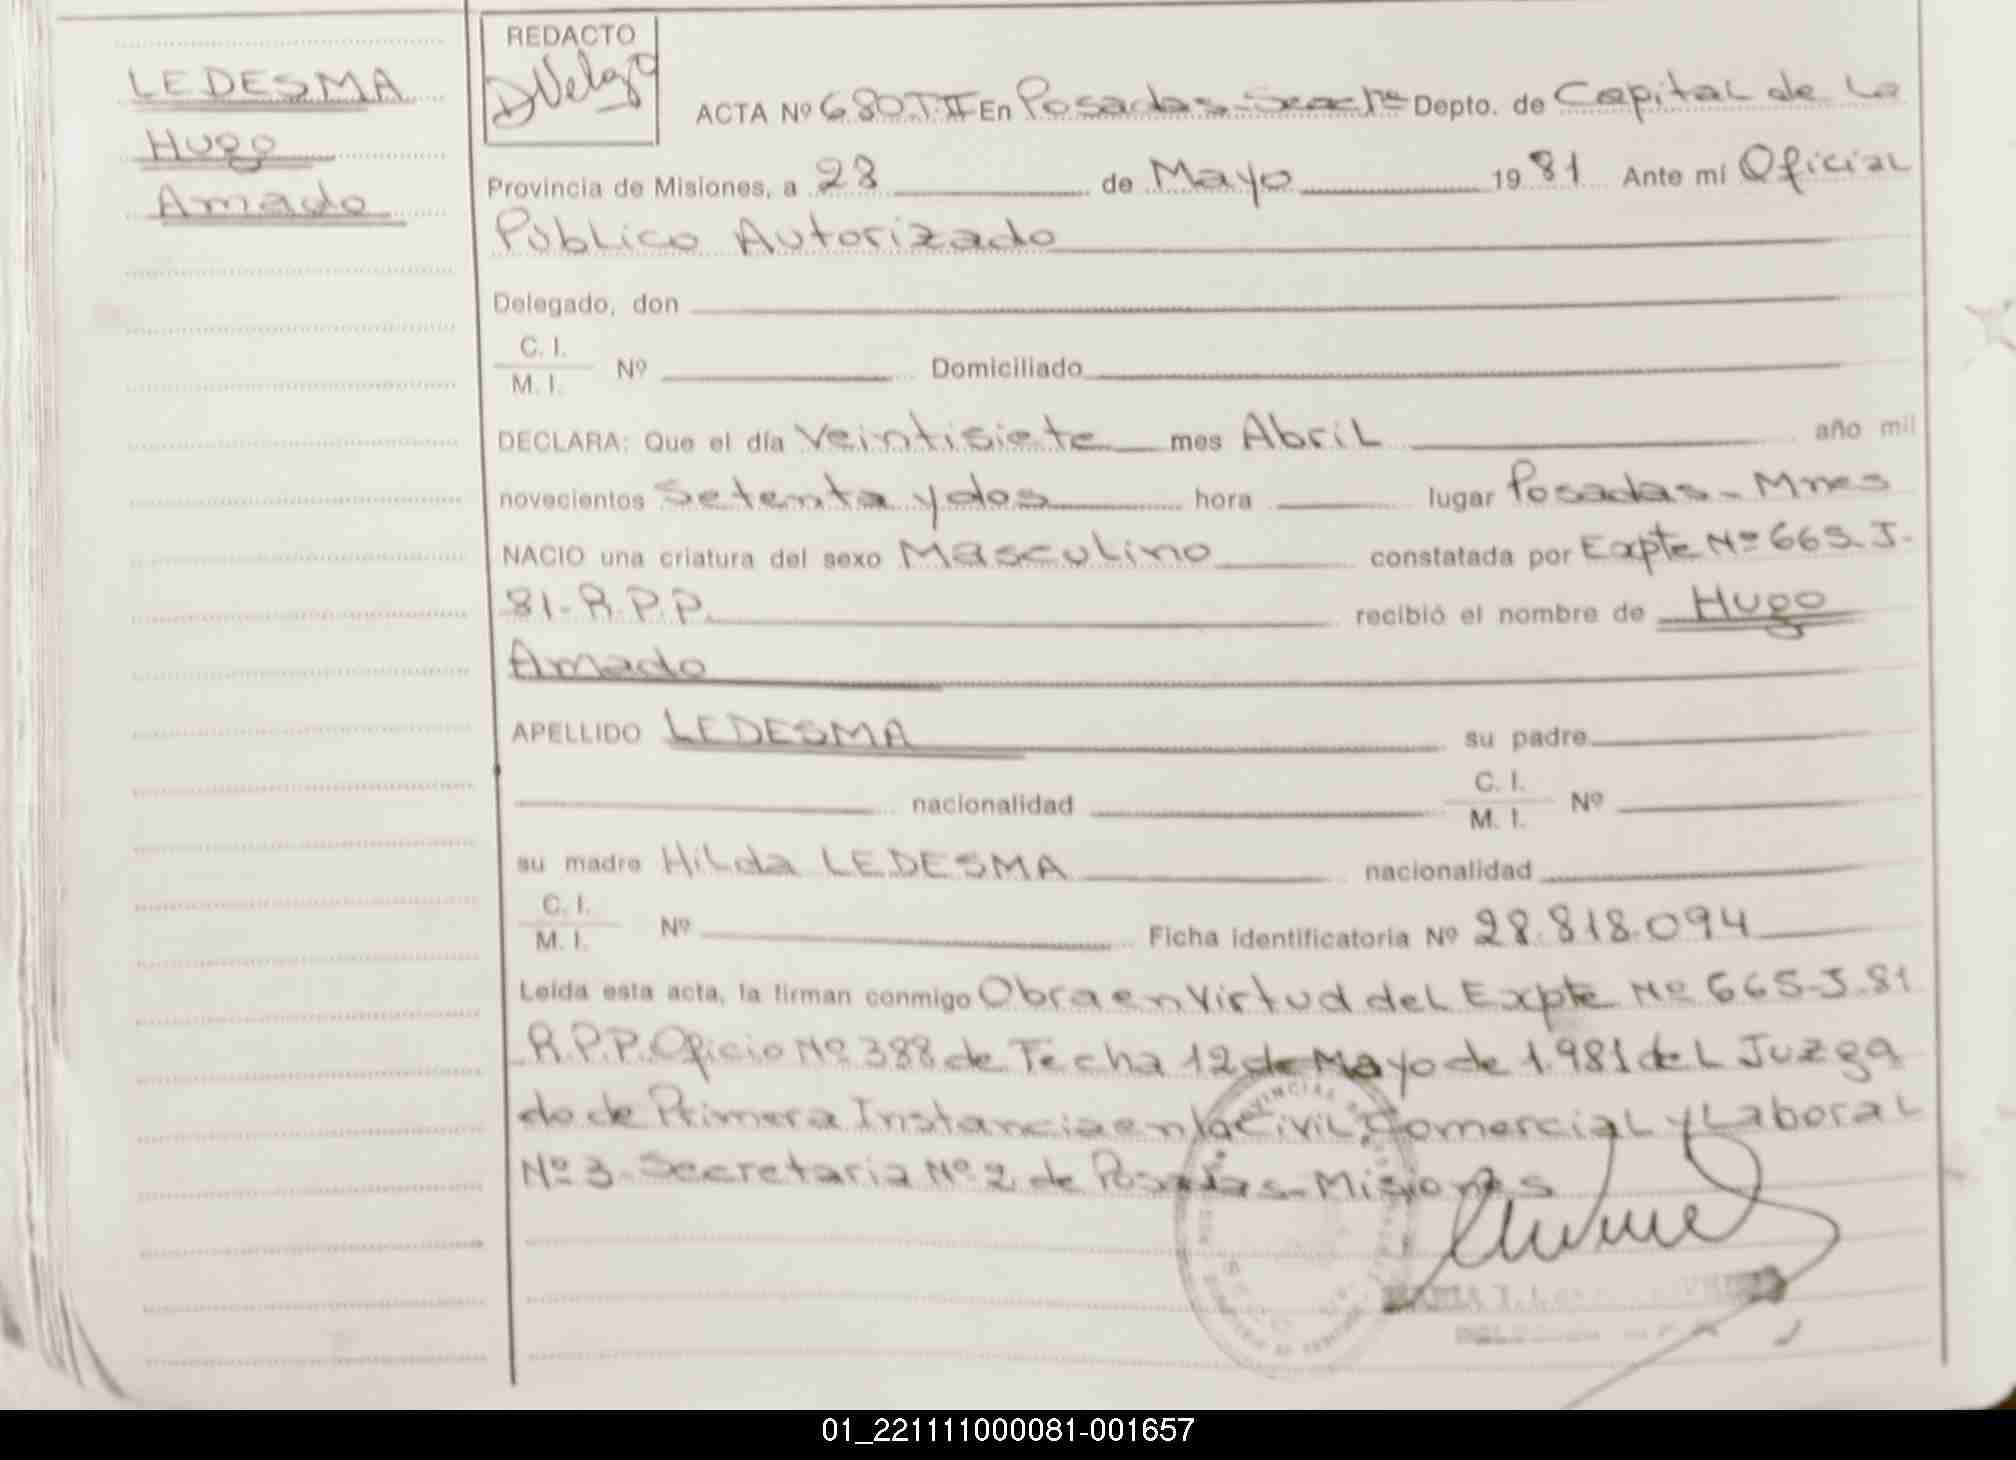 LEDESMA
Hugo
Amado
REDACTO
ACTA Nº 680 T·II En Posadas - Seach^a Depto. de Capital de La
Provincia de Misiones, a 28 de Mayo 1981 Ante mí Oficial
Público Autorizado
Delegado, don
C. I.
M. I. Nº Domiciliado
DECLARA: Que el día Veintisiete mes Abril año mil
novecientos Setenta y dos hora lugar Posadas - Mnes
NACIO una criatura del sexo Masculino constatada por Expte Nº 665-J-
81-R.P.P. recibió el nombre de Hugo
Amado
APELLIDO LEDESMA su padre
nacionalidad C. I.
M. I. Nº
su madre Hilda LEDESMA nacionalidad
C. I.
M. I. Nº Ficha identificatoria Nº 28.818.094
Leída esta acta, la firman conmigo Obra en Virtud del Expte Nº 665-J-81
R.P.P. Oficio Nº 388 de Fecha 12 de Mayo de 1.981 del Juzga
do de Primera Instancia en lo Civil, Comercial y Laboral
Nº 3 - Secretaria Nº 2 de Posadas - Misiones
01_221111000081-001657